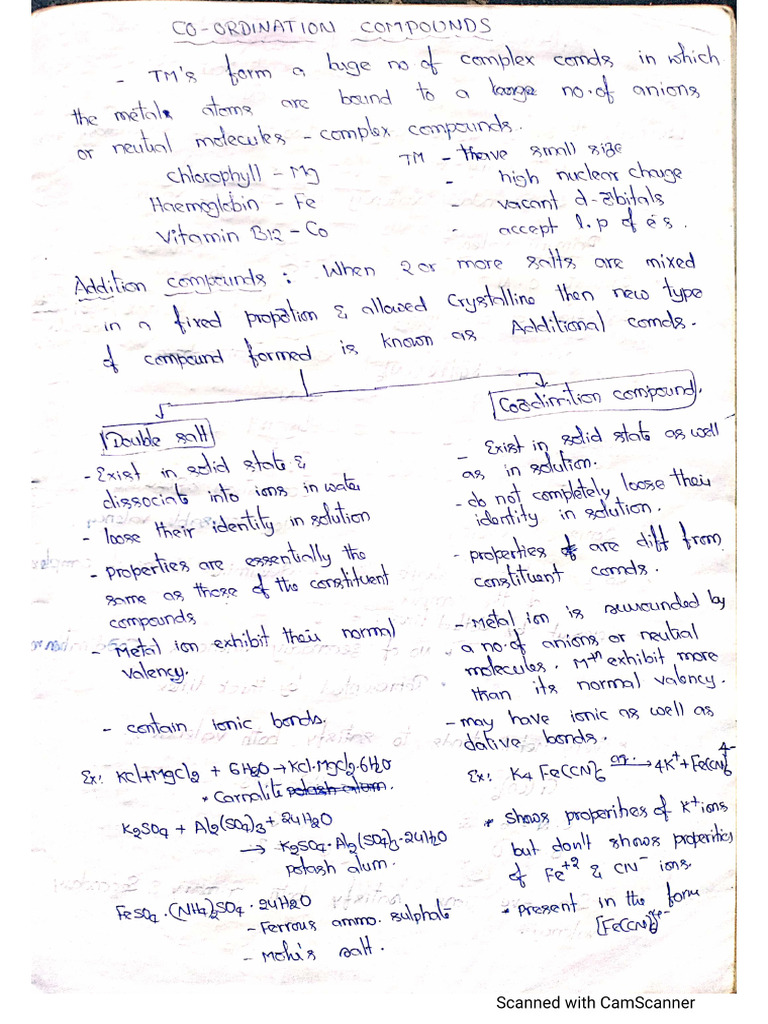 CO-ORDINATION COMPOUNDS
- TM's form a huge no of complex comds in which
the metal atoms are bound to a large no. of anions
or neutral molecules - complex compounds.
Chlorophyll - Mg
Haemoglobin - Fe
Vitamin B12 - Co
TM - have small size
- high nuclear charge
- vacant d-orbitals
- accept l.p of e's.
Addition compounds : When 2 or more salts are mixed
in a fixed propotion & allowed Crystalline then new type
of compound formed is known as Additional comds.
Double salt
- Exist in solid state &
dissociate into ions in water
- loose their identity in solution
- properties are essentially the
same as those of the constituent
compounds
- Metal ion exhibit their normal
valency.
- contain ionic bonds.
Ex: KCl+MgCl2 + 6H2O → KCl·MgCl2·6H2O
• Carnalite potash alum.
K2SO4 + Al2(SO4)3 + 24H2O
→ K2SO4·Al2(SO4)3·24H2O
potash alum.
FeSO4·(NH4)2SO4·24H2O
- Ferrous ammo. sulphate
- Mohr's salt.
Coordination compound.
- Exist in solid state as well
as in solution.
- do not completely loose their
identity in solution.
- properties are diff from
constituent comds.
- Metal ion is surrounded by
a no. of anions or neutral
molecules. M+n exhibit more
than its normal valency.
- may have ionic as well as
dative bonds.
Ex: K4 Fe(CN)6 aq. → 4K+ + Fe(CN)6 4-
* shows properities of K+ ions
but don't shows properities
of Fe+2 & CN- ions.
• Present in the form
[Fe(CN)6]4-
Scanned with CamScanner